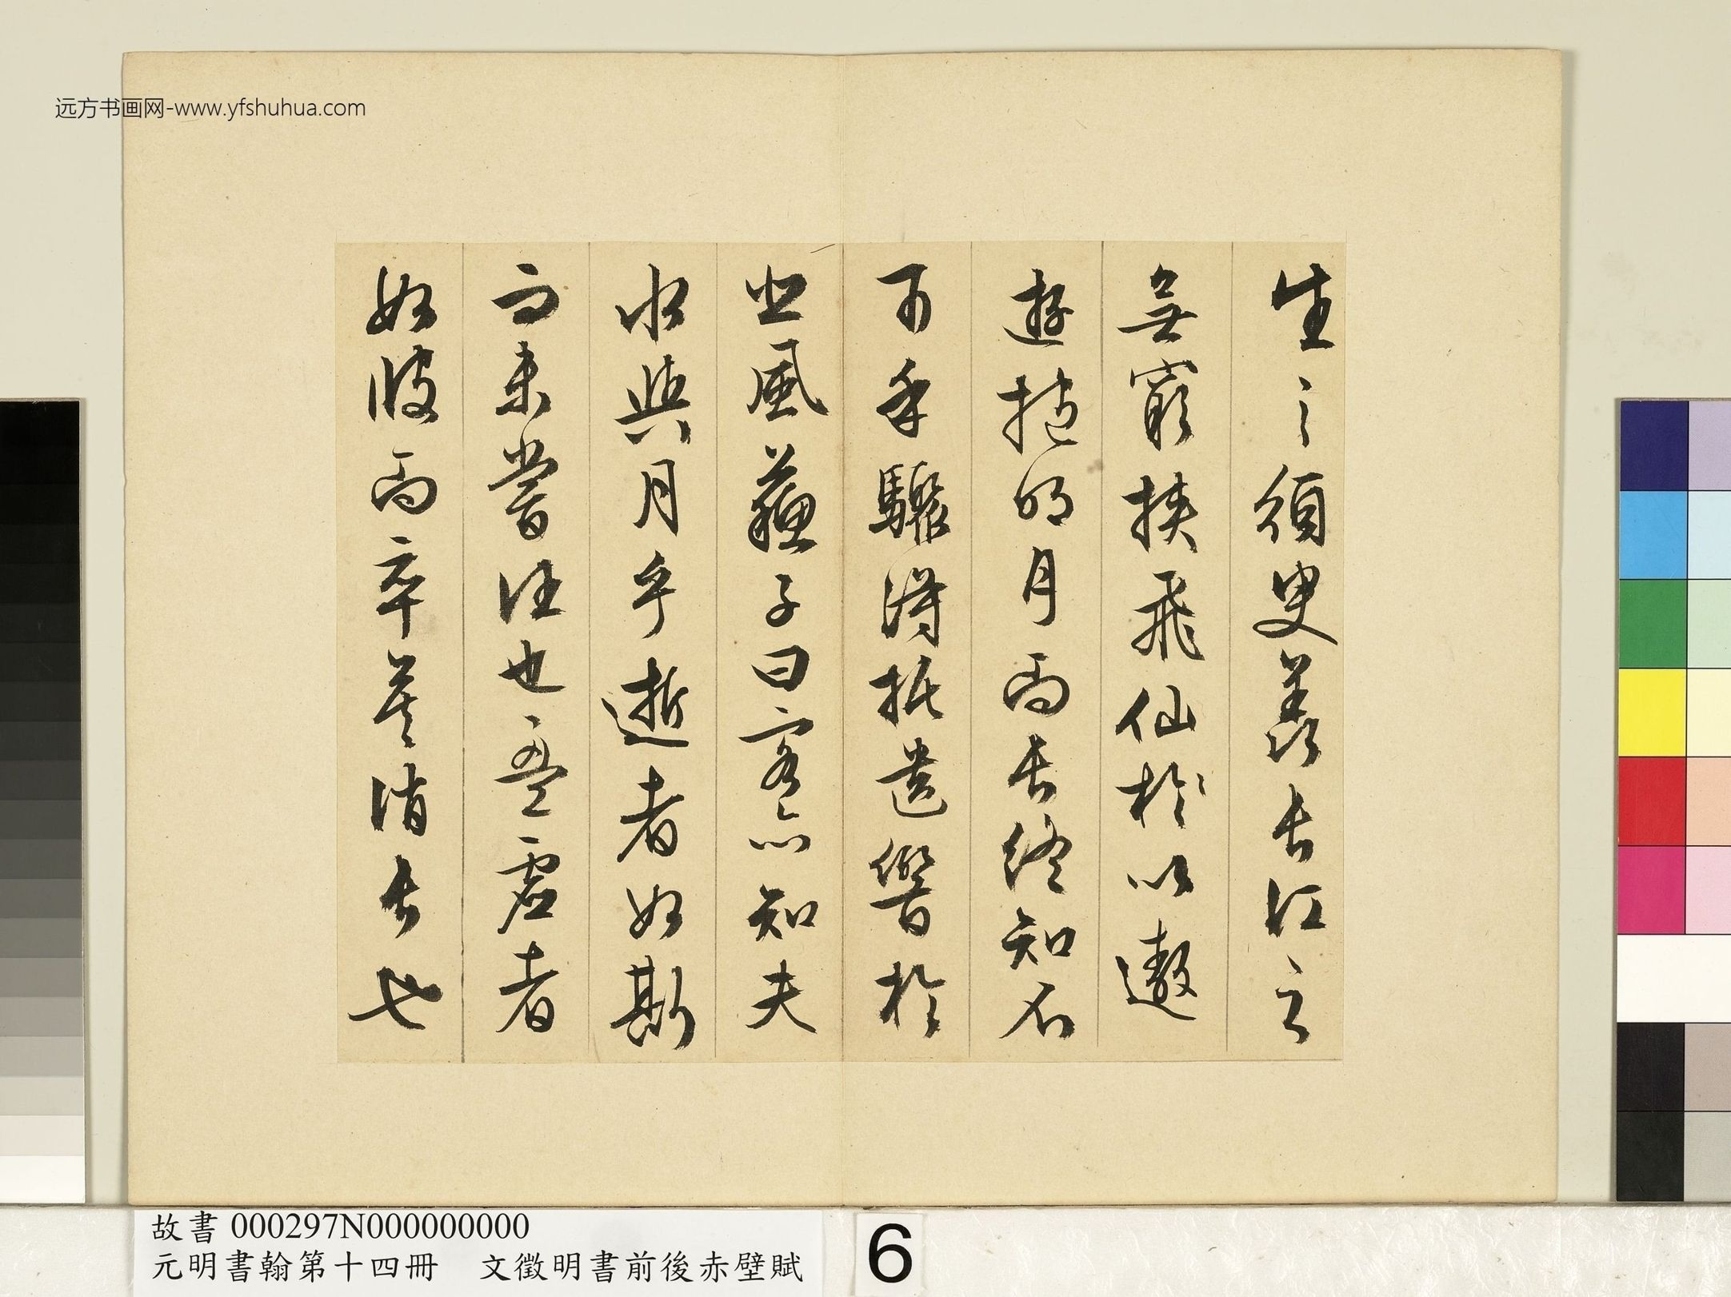 远方书画网-www.yfshuhua.com
生之須臾羨長江之
無窮挾飛仙於以遨
遊抱明月而長終知不
可乎驟得托遺響於
悲風蘇子曰客亦知夫
水與月乎逝者如斯
而未嘗往也盈虛者
如彼而卒莫消長也
故書 000297N000000000
元明書翰第十四冊 文徵明書前後赤壁賦
6